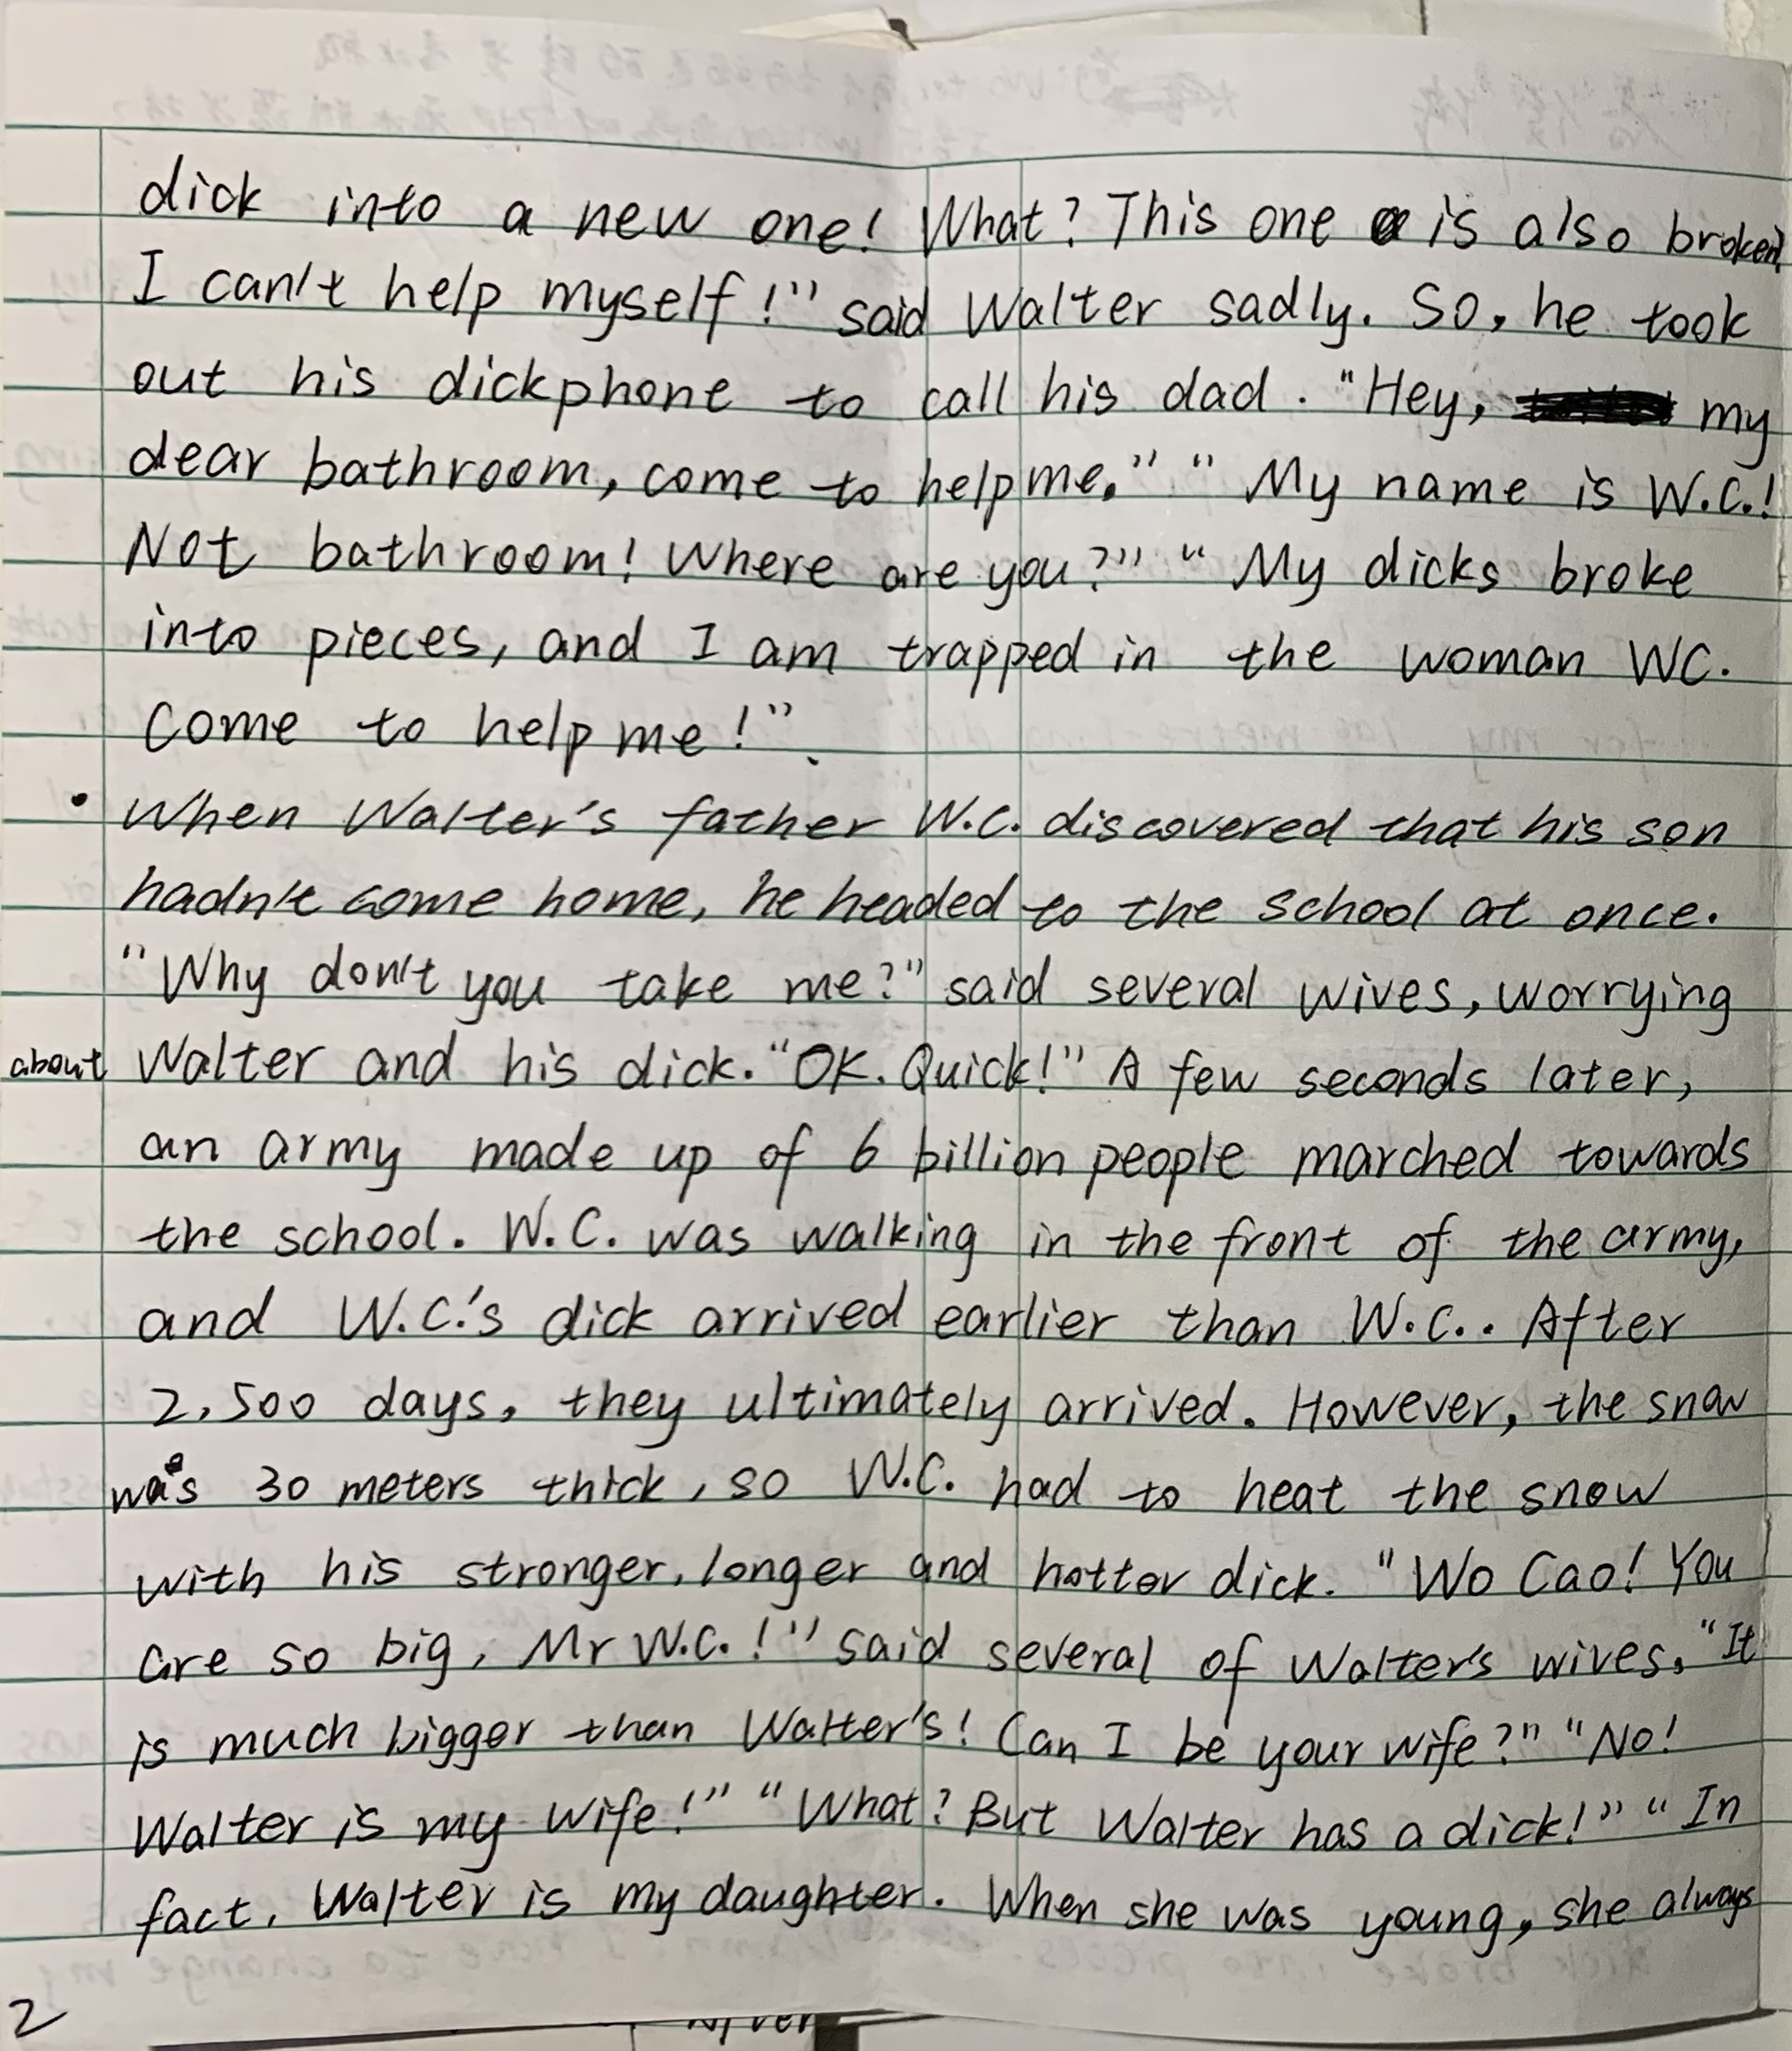 dick into a new one! What? This one is also broken!
I can't help myself!" said Walter sadly. So, he took
out his dickphone to call his dad. "Hey, my
dear bathroom, come to help me." "My name is W.C.!
Not bathroom! Where are you?" "My dicks broke
into pieces, and I am trapped in the woman WC.
Come to help me!".
• When Walter's father W.C. discovered that his son
hadn't come home, he headed to the school at once.
"Why don't you take me?" said several wives, worrying
about Walter and his dick. "OK. Quick!" A few seconds later,
an army made up of 6 billion people marched towards
the school. W.C. was walking in the front of the army,
and W.C.'s dick arrived earlier than W.C.. After
2,500 days, they ultimately arrived. However, the snow
was 30 meters thick, so W.C. had to heat the snow
with his stronger, longer and hotter dick. "Wo Cao! You
are so big, Mr W.C.!" said several of Walter's wives. "It
is much bigger than Walter's! Can I be your wife?" "No!
Walter is my wife!" "What? But Walter has a dick!" "In
fact, Walter is my daughter. When she was young, she always
2